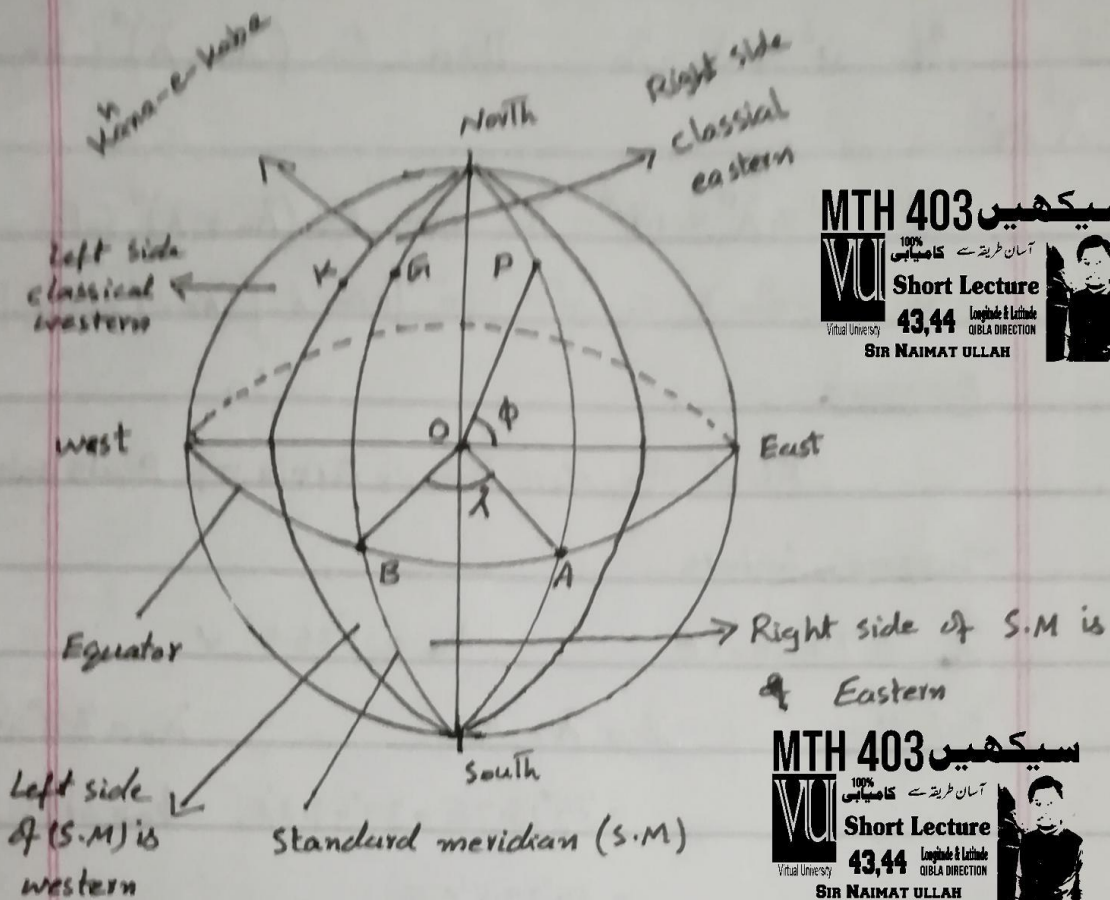 Khana-e-Kaba
North
Right side
classial
eastern
Left side
classical
western
K
G
P
West
O
φ
East
λ
B
A
Equator
Right side of S.M is
Eastern
South
Left side
of (S.M) is
western
Standard meridian (S.M)
MTH 403 سیکھیں
VU
100%
آسان طریقہ سے کامیابی
Short Lecture
43,44
Longitude & Latitude
QIBLA DIRECTION
Virtual University
SIR NAIMAT ULLAH
MTH 403 سیکھیں
VU
100%
آسان طریقہ سے کامیابی
Short Lecture
43,44
Longitude & Latitude
QIBLA DIRECTION
Virtual University
SIR NAIMAT ULLAH